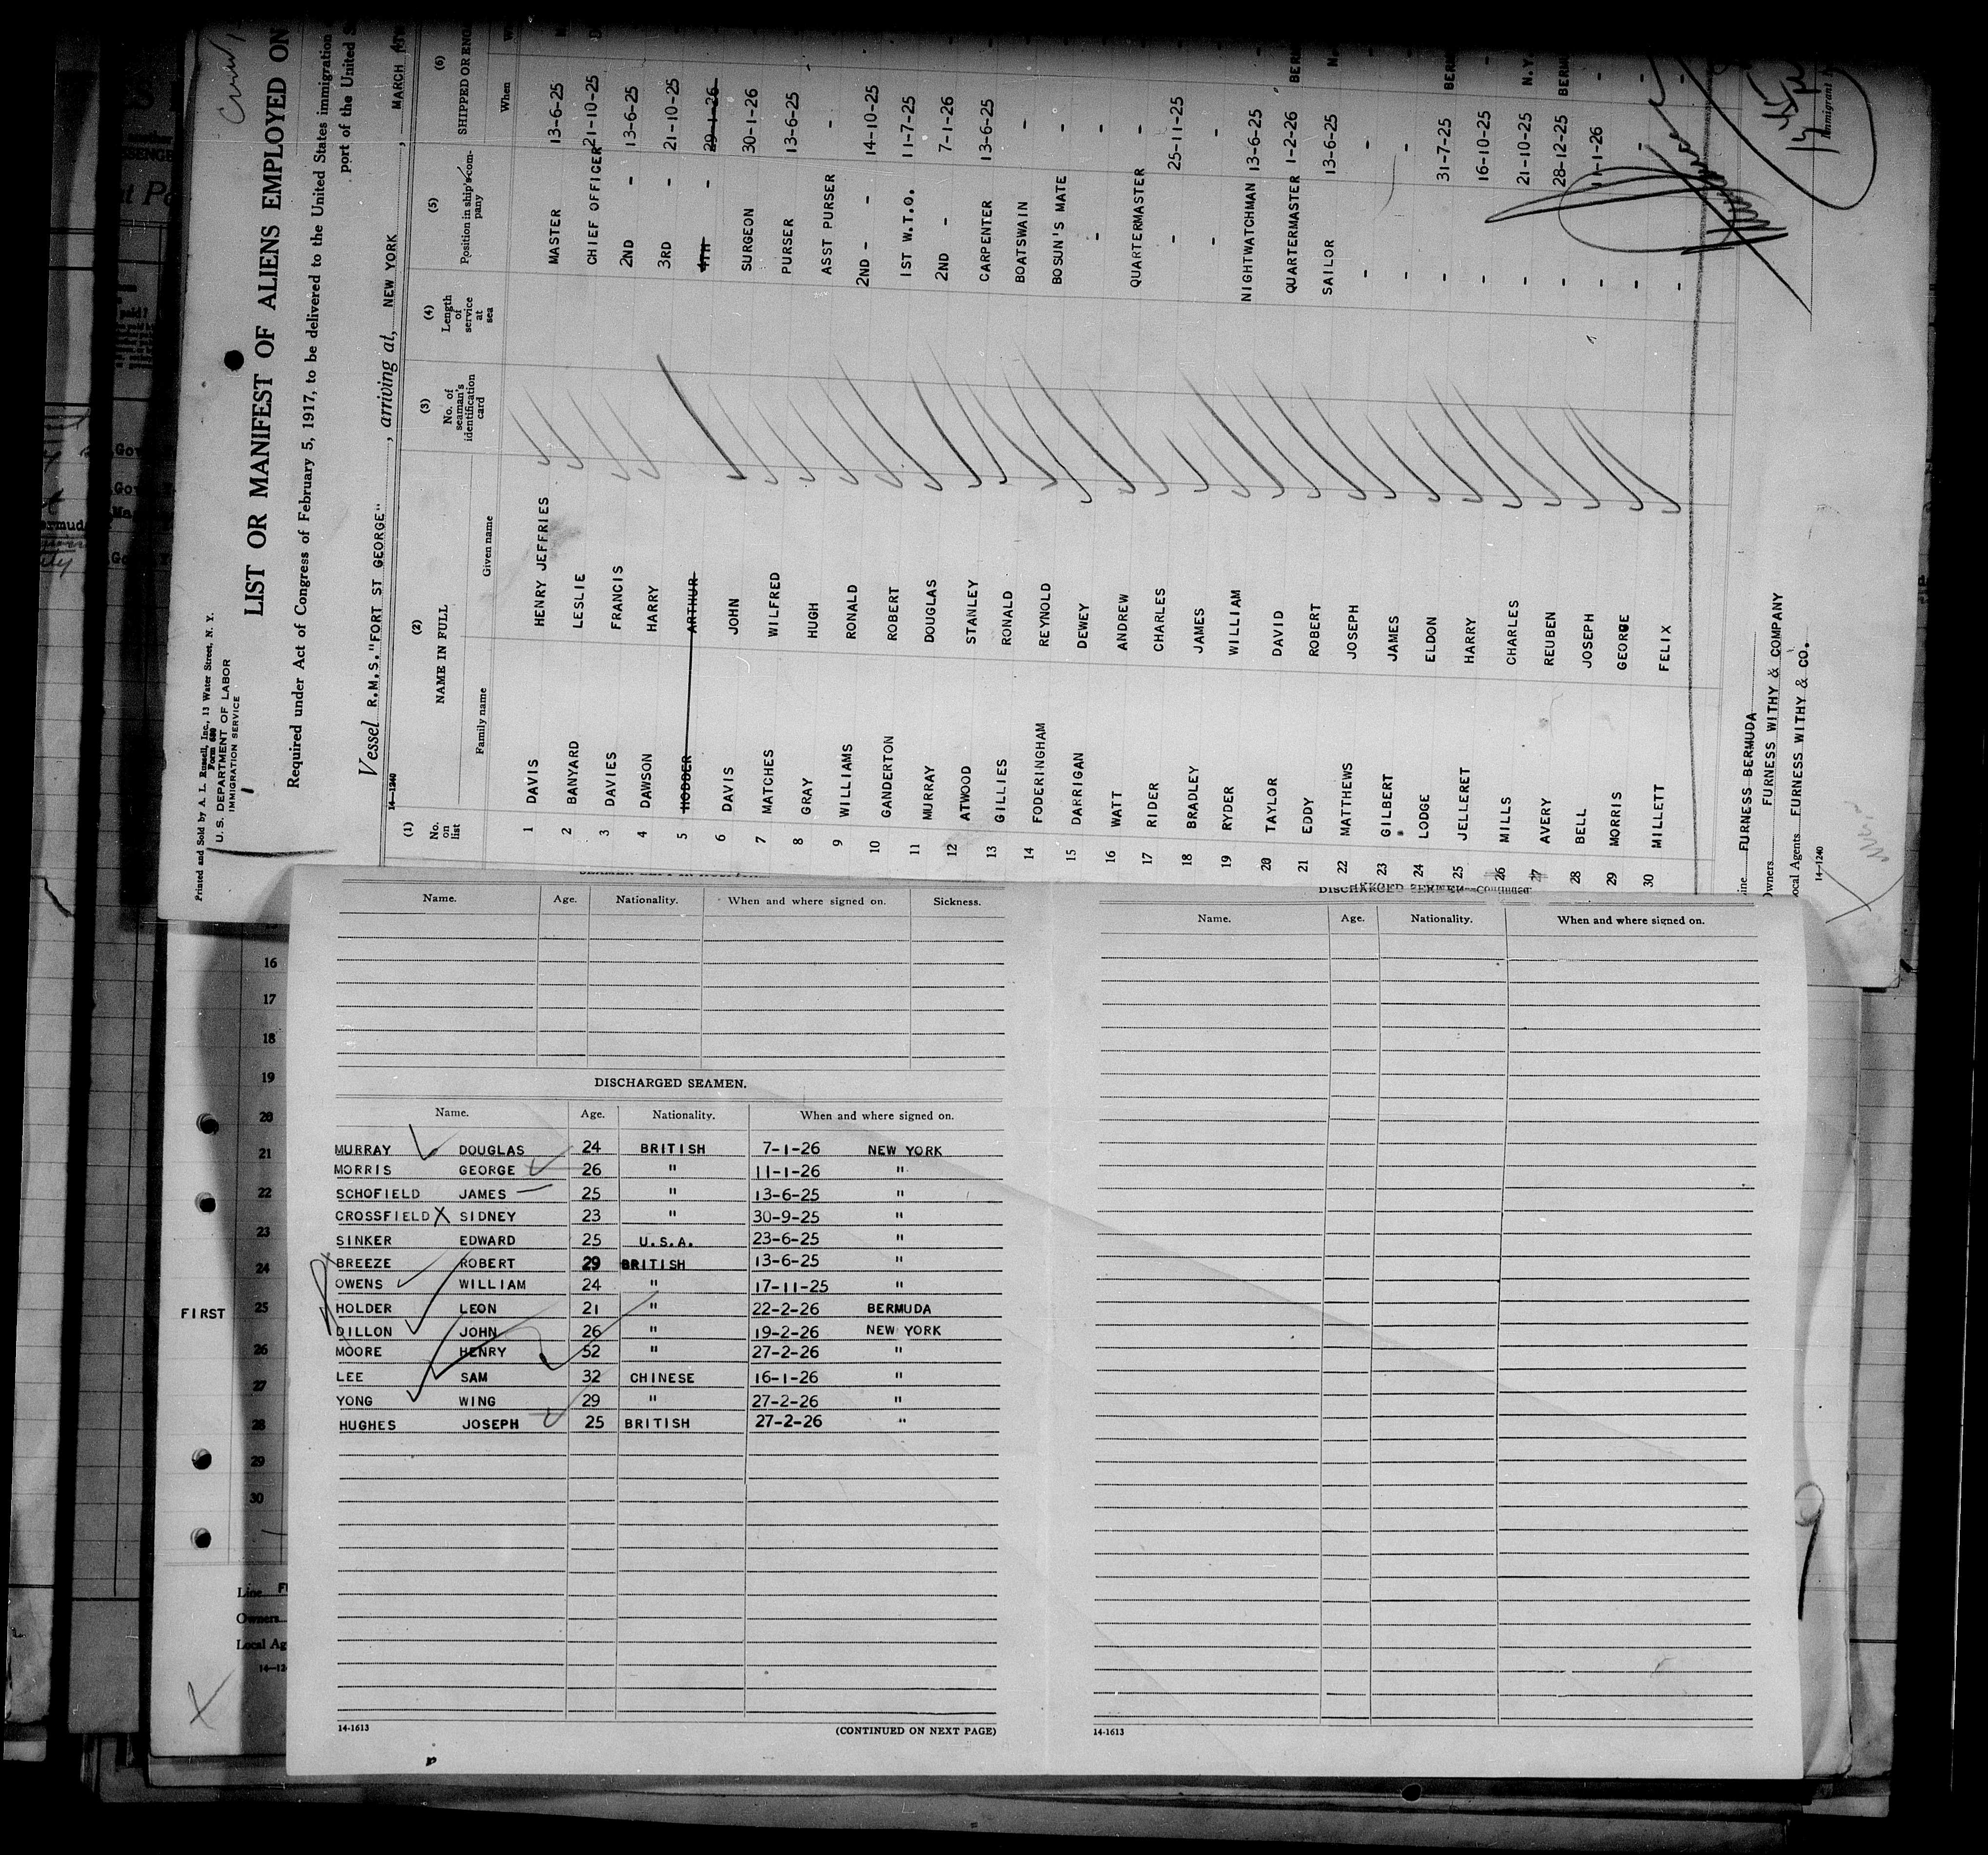 Printed and Sold by A. L. Russell, Inc., 13 Water Street, N. Y.
Form 680
U. S. DEPARTMENT OF LABOR
IMMIGRATION SERVICE
LIST OR MANIFEST OF ALIENS EMPLOYED ON
Required under Act of Congress of February 5, 1917, to be delivered to the United States immigration
port of the United S
Vessel R.M.S."FORT ST GEORGE" , arriving at, NEW YORK , MARCH
14-1240
(1) (2) (3) (4) (5) (6)
No. on list NAME IN FULL No. of seaman's identification card Length of service at sea Position in ship's company SHIPPED OR ENG
Family name Given name When
1 DAVIS HENRY JEFFRIES MASTER 13-6-25
2 BANYARD LESLIE CHIEF OFFICER 21-10-25
3 DAVIES FRANCIS 2ND - 13-6-25
4 DAWSON HARRY 3RD - 21-10-25
5 HODDER ARTHUR 4TH - 29-1-26
6 DAVIS JOHN SURGEON 30-1-26
7 MATCHES WILFRED PURSER 13-6-25
8 GRAY HUGH ASST PURSER -
9 WILLIAMS RONALD 2ND - - 14-10-25
10 GANDERTON ROBERT 1ST W.T.O. 11-7-25
11 MURRAY DOUGLAS 2ND - 7-1-26
12 ATWOOD STANLEY CARPENTER 13-6-25
13 GILLIES RONALD BOATSWAIN -
14 FODERINGHAM REYNOLD BOSUN'S MATE -
15 DARRIGAN DEWEY - -
16 WATT ANDREW QUARTERMASTER -
17 RIDER CHARLES - 25-11-25
18 BRADLEY JAMES - -
19 RYDER WILLIAM NIGHTWATCHMAN 13-6-25
20 TAYLOR DAVID QUARTERMASTER 1-2-26 BERM
21 EDDY ROBERT SAILOR 13-6-25 N.
22 MATTHEWS JOSEPH - -
23 GILBERT JAMES - -
24 LODGE ELDON - 31-7-25 BERM
25 JELLERET HARRY - 16-10-25 -
26 MILLS CHARLES - 21-10-25 N.Y.
27 AVERY REUBEN - 28-12-25 BERM
28 BELL JOSEPH - 11-1-26 -
29 MORRIS GEORGE - - -
30 MILLETT FELIX - - -
ine FURNESS BERMUDA
Owners FURNESS WITHY & COMPANY
ocal Agents FURNESS WITHY & CO.
14-1240
Immigrant
Name. Age. Nationality. When and where signed on. Sickness.
DISCHARGED SEAMEN.
Name. Age. Nationality. When and where signed on.
MURRAY DOUGLAS 24 BRITISH 7-1-26 NEW YORK
MORRIS GEORGE 26 " 11-1-26 "
SCHOFIELD JAMES 25 " 13-6-25 "
CROSSFIELD X SIDNEY 23 " 30-9-25 "
SINKER EDWARD 25 U.S.A. 23-6-25 "
BREEZE ROBERT 29 BRITISH 13-6-25 "
OWENS WILLIAM 24 " 17-11-25 "
HOLDER LEON 21 " 22-2-26 BERMUDA
DILLON JOHN 26 " 19-2-26 NEW YORK
MOORE HENRY 52 " 27-2-26 "
LEE SAM 32 CHINESE 16-1-26 "
YONG WING 29 " 27-2-26 "
HUGHES JOSEPH 25 BRITISH 27-2-26 "
14-1613 (CONTINUED ON NEXT PAGE)
DISCHARGED SEAMEN—Continued
Name. Age. Nationality. When and where signed on.
14-1613
16
17
18
19
20
21
22
23
24
FIRST 25
26
27
28
29
30
Line
Owners
Local Ag